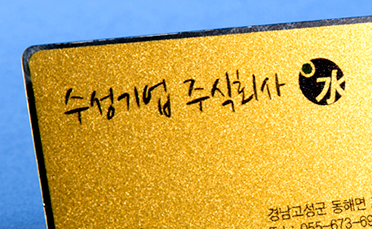 수성기업 주식회사 水
경남고성군 동해면
055-673-6